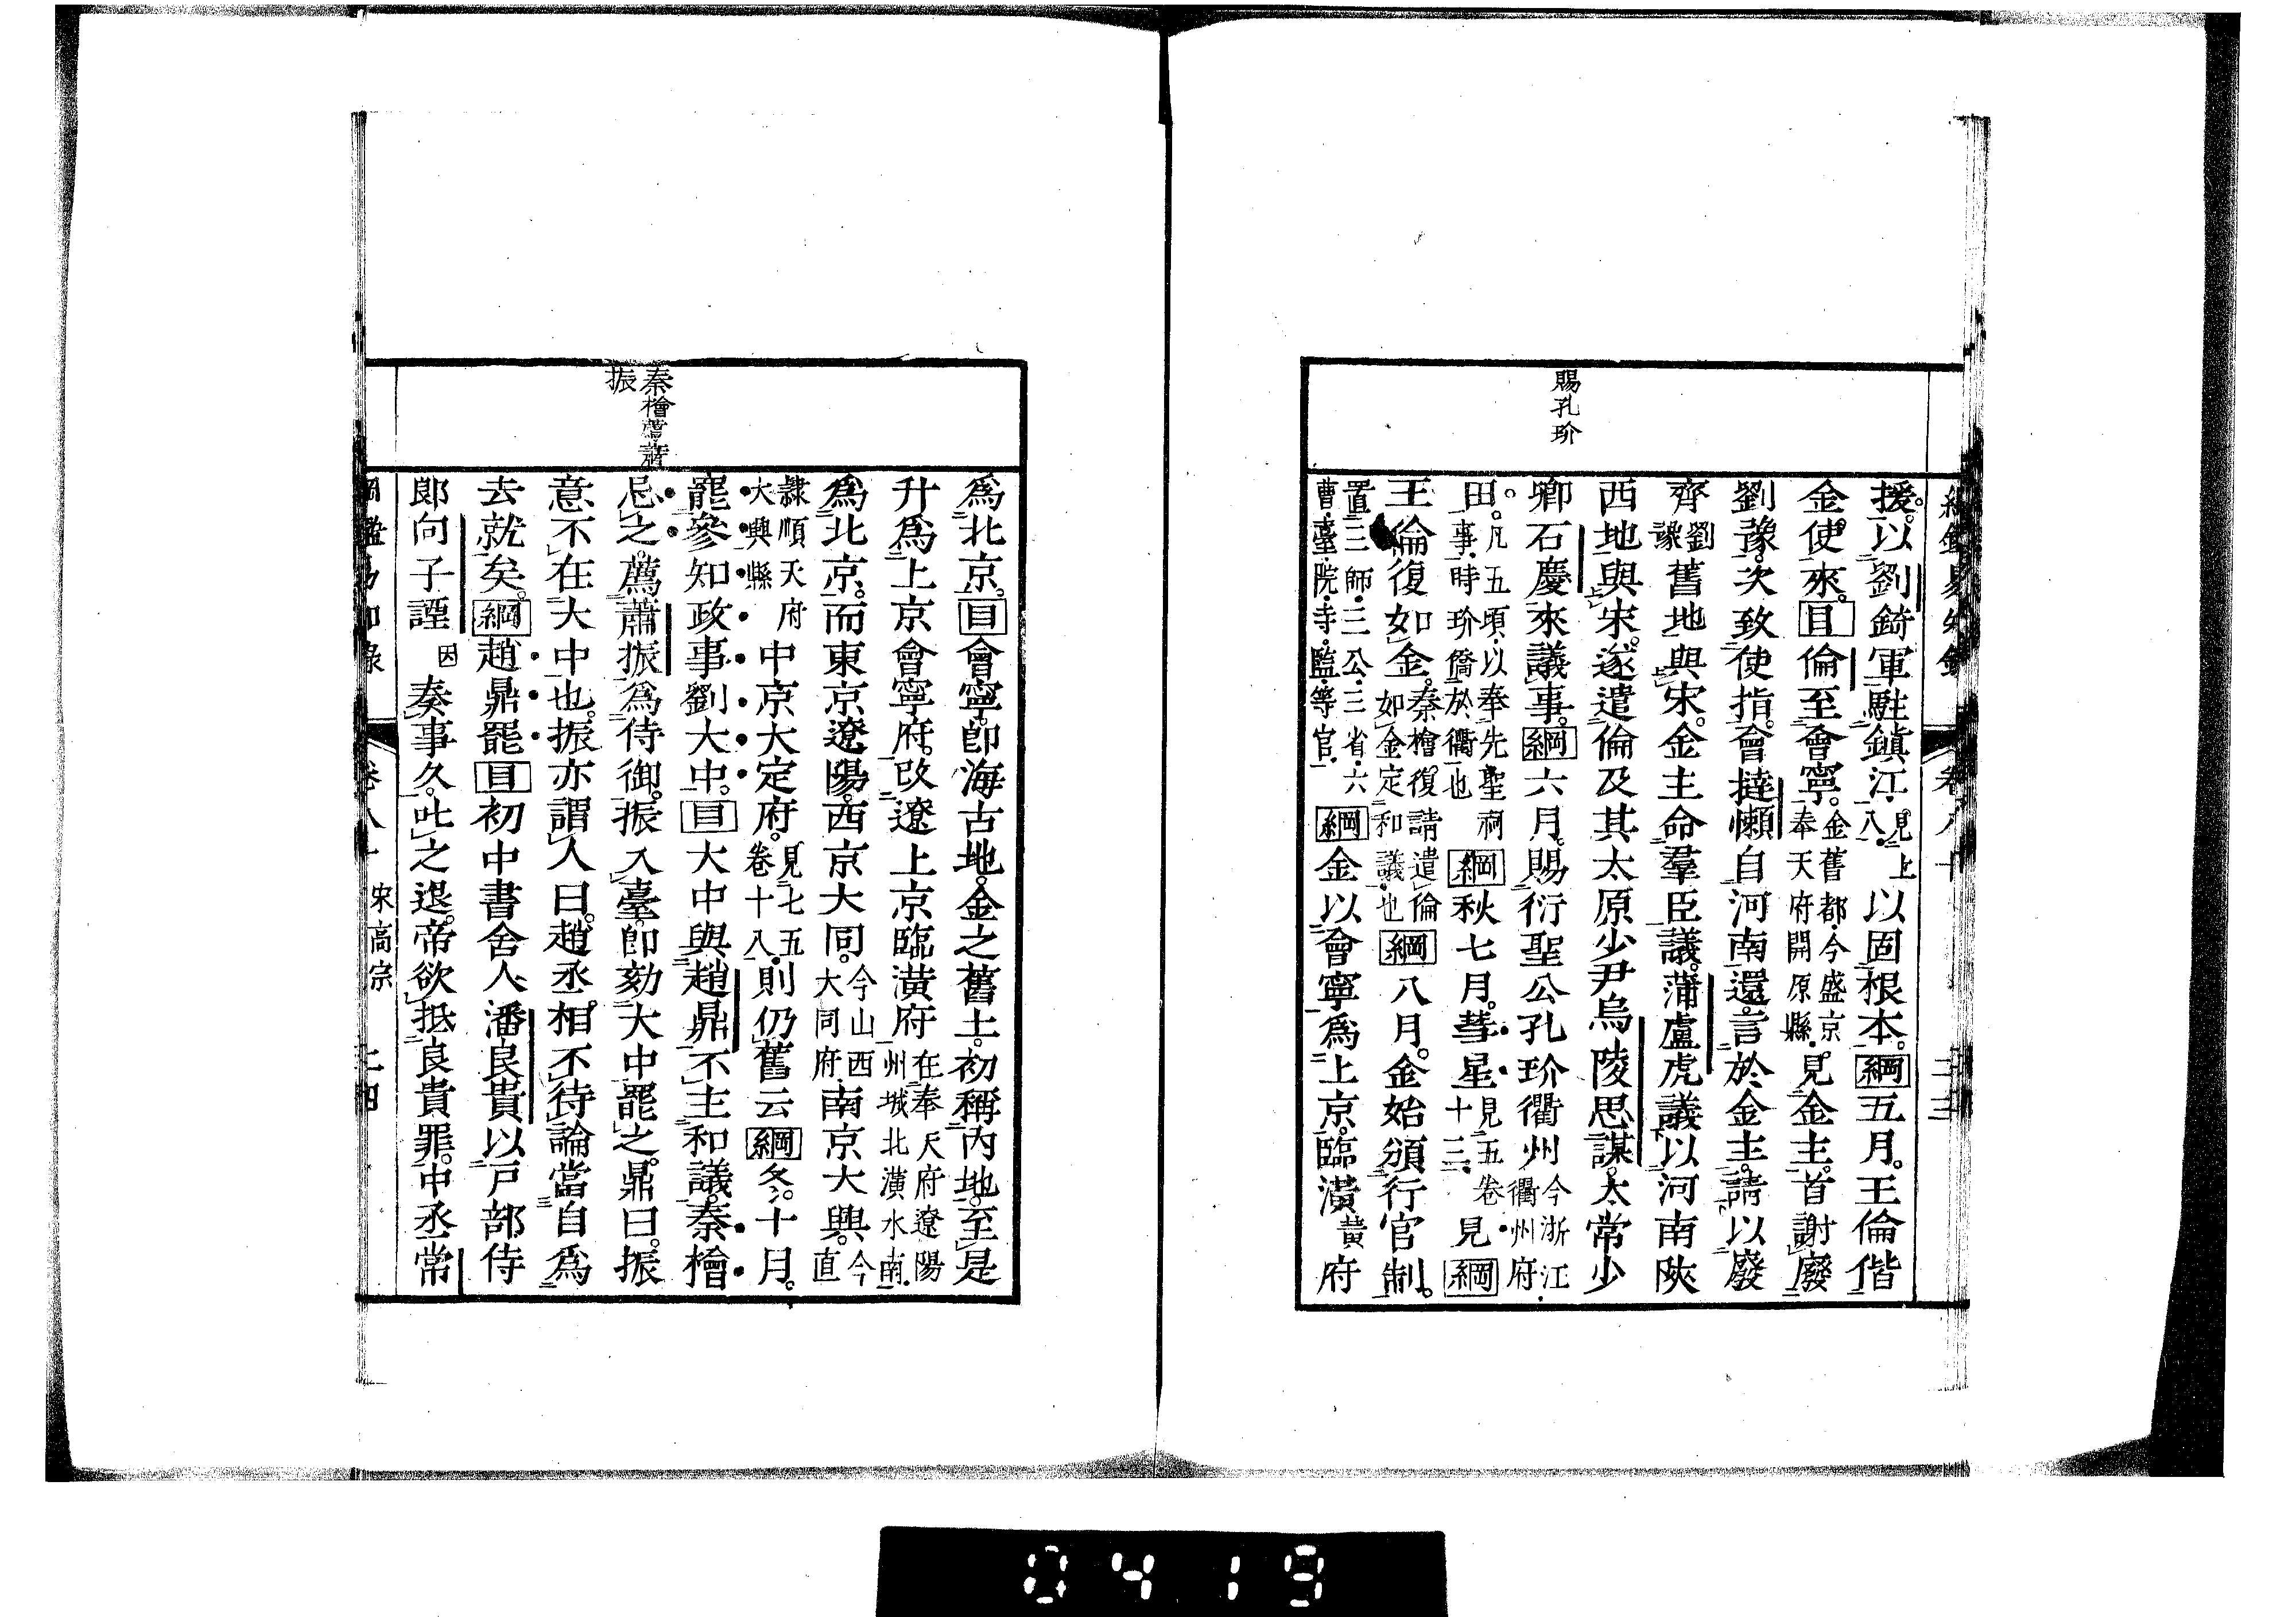 賜孔玠
援。以劉錡軍駐鎮江。見上八。以固根本。綱五月。王倫偕
金使來。目倫至會寧。金舊都。今盛京奉天府開原縣。見金主。首謝廢
劉豫。次致使指。會撻懶自河南還。言於金主。請以廢
齊劉豫舊地與宋。金主命羣臣議。蒲盧虎議以河南陝
西地與宋。遂遣倫及其太原少尹烏陵思謀。太常少
卿石慶來議事。綱六月。賜衍聖公孔玠衢州今浙江衢州府。
田。凡五頃。以奉先聖祠事。時玠僑於衢也綱秋七月。彗星見五卷十三。見綱
王倫復如金。秦檜復請遣倫如金定和議也綱八月。金始頒行官制。
置三師三公三省六曹臺院寺監等官。綱金以會寧爲上京。臨潢黃府
秦檜薦蕭
振
爲北京。目會寧。卽海古地。金之舊土。初稱內地。至是
升爲上京會寧府。改遼上京臨潢府在奉天府遼陽州城北潢水南。
爲北京。而東京遼陽。西京大同。今山西大同府。南京大興。今直
隸順天府大興縣中京大定府。見七五卷十八。則仍舊云綱冬。十月。
罷參知政事劉大中。目大中與趙鼎不主和議。秦檜
忌之。薦蕭振爲侍御。振入臺。卽劾大中罷之。鼎曰。振
意不在大中也。振亦謂人曰。趙丞相不待論當自爲
去就矣。綱趙鼎罷目初中書舍人潘良貴以戸部侍
郞向子諲因奏事久。叱之退。帝欲抵良貴罪。中丞常
宋高宗
0419